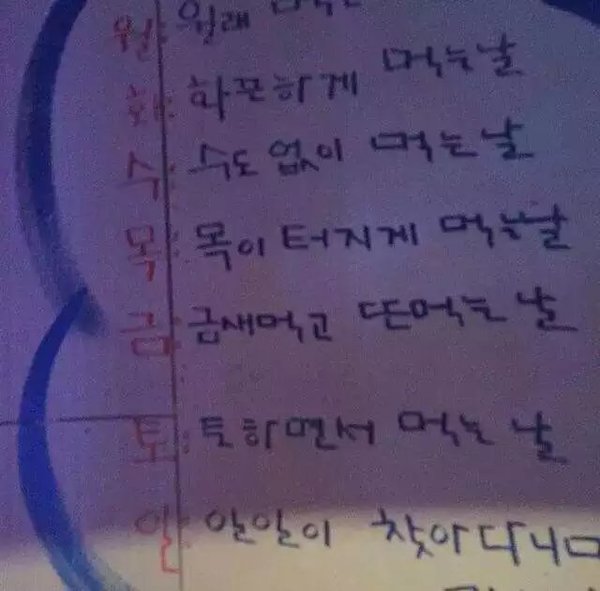 월: 월래 먹는
화: 화끈하게 먹는날
수: 수도 없이 먹는날
목: 목이 터지게 먹는날
금: 금새먹고 또먹는 날
토: 토하면서 먹는 날
일: 일일이 찾아다니며